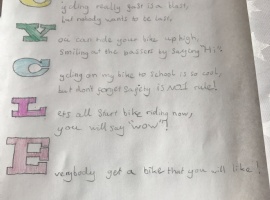 going really fast is a blast,
but nobody wants to be last,
Y
ou can ride your bike up high,
Smiling at the passers by saying "Hi"
C
ycling on my bike to school is so cool,
but don't forget safety is NO1 rule!
L
ets all start bike riding now,
you will say "wow"!
E
verybody get a bike that you will like!